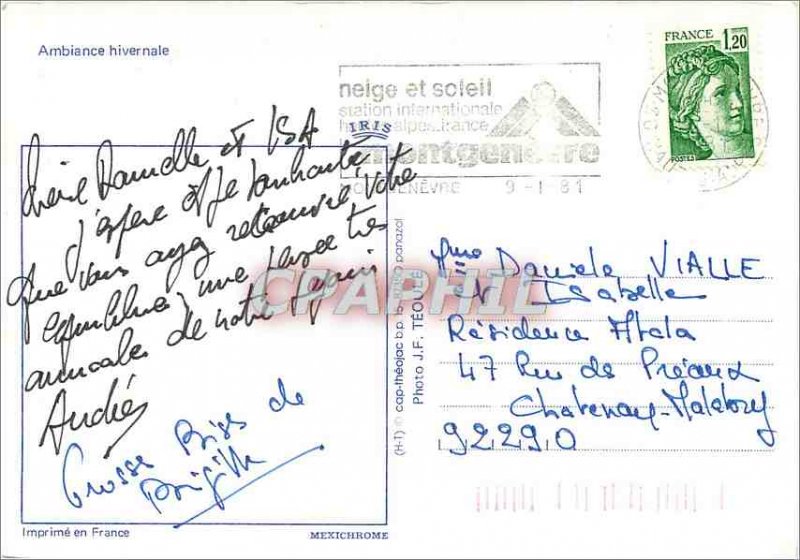 Ambiance hivernale
FRANCE 1,20
POSTES
neige et soleil
station internationale
hautes alpes.france
montgenèvre
MONTGENÈVRE 9-1-81
IRIS
Chère Danielle et ISA
J'espère et Je souhaite
que vous ayez retrouvé votre
équilibre, une pensée très
amicale de notre
André
Grosse Bises de
Brigitte
Mme Daniele VIALLE
et Isabelle
Résidence Atala
47 Rue de Préaux
Chatenay-Malabry
92290
(H-T) © cap-théojac b.p. panazol
Photo J.F. TÉOULÉ
CPARPHIL
Imprimé en France
MEXICHROME